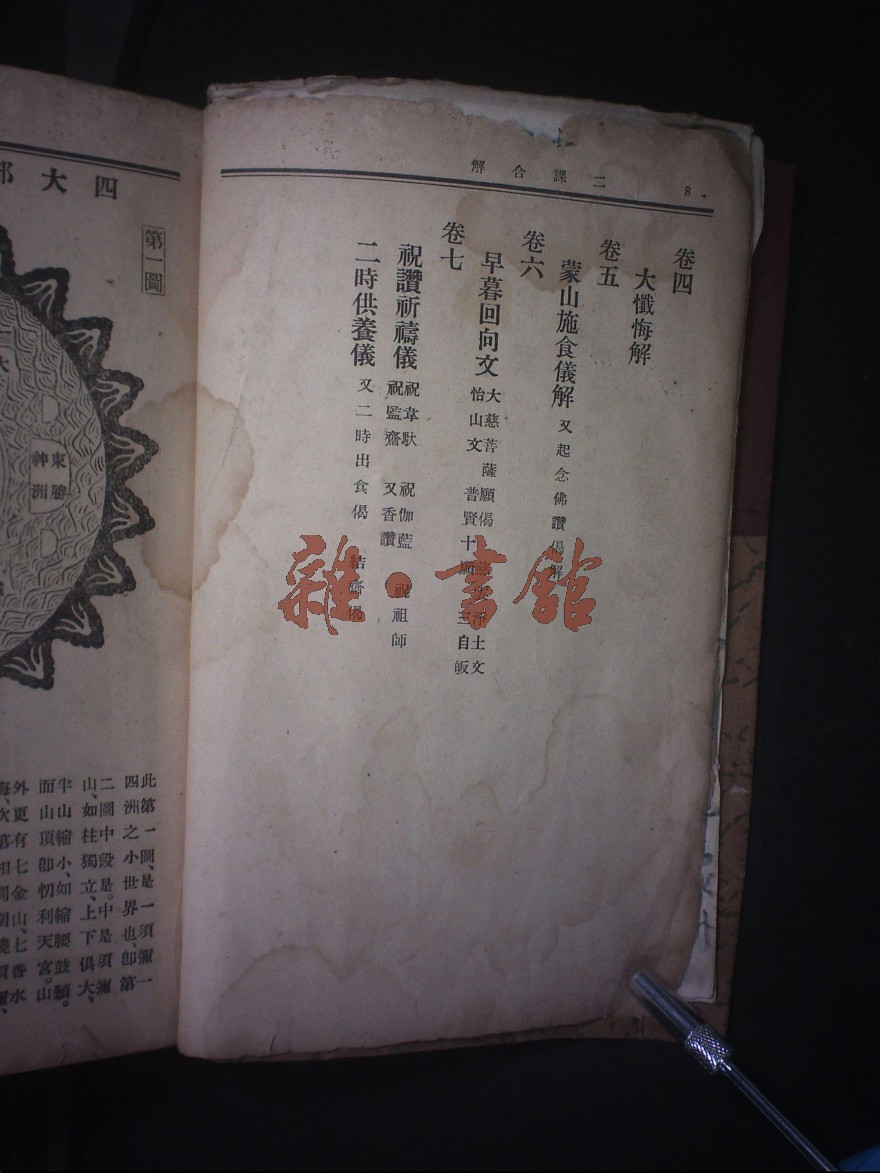 二課合解
8
卷四
大懺悔解
卷五
蒙山施食儀解 又起念佛讚偈解
卷六
早暮回向文 大慈菩薩願偈 慈雲淨土文
怡山文 普賢十願 三自皈
卷七
祝讚祈禱儀 祝韋馱 祝伽藍 祝祖師
祝監齋 又香讚
二時供養儀 又二時出食偈 結齋偈
雜·書館
四大部
第一圖
東勝
神洲
大
此第一圖、是一須彌
四洲之小世界也、即第一
二圖中段是。中是須彌
山、如柱獨立、上下俱大、
半山縮小、如縮腰鼓類。
而山頂即忉利天宮。山
外更有七金山、七香水